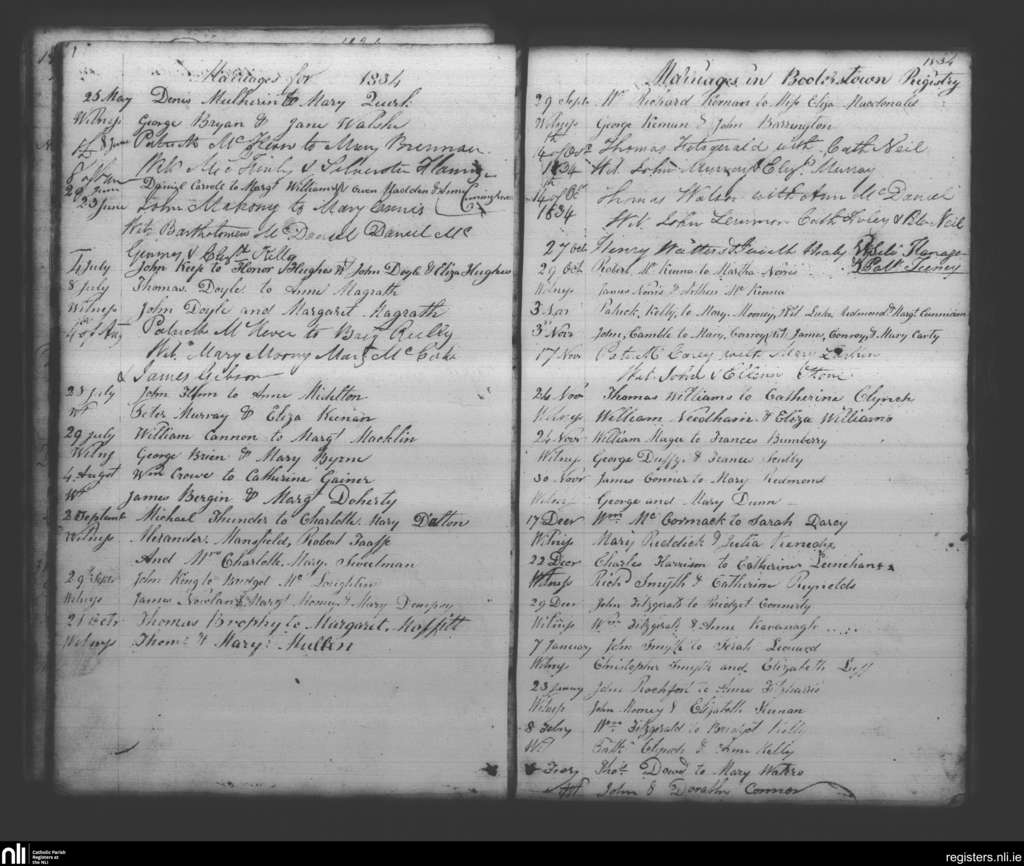 Marriages for 1834
25 May Denis Mulherin to Mary Quirk
Witness George Bryan & Jane Walsh
8 June Patrick McKeon to Mary Brennan
Wit. & Silvester
29 June Daniel Carroll to Margt Williams Wt Owen Hadden & Anne Cunningham
23 June John Mahony to Mary Ennis
Wit. Bartholomew McDaniel Daniel Mc
Kelly
4 July John Keep to Honor Hughes Wt John Doyle & Eliza Hughes
8 July Thomas Doyle to Anne Magrath
Witness John Doyle and Margaret Magrath
4th of Aug Patrick McKever to Reilly
Wit. Mary Moony Mary McCabe
& James Gibson
28 July John Flynn to Anne Midelton
Wt Peter Murray & Eliza Keenan
29 July William Cannon to Margt Macklin
Witness George Brien & Mary Byrne
4 Augst Wm Crowe to Catherine Gainer
Wt James Bergin & Margt Doherty
2 Septembr Michael Thunder to Charlotte Mary Dalton
Witness Alexander Mansfield, Robert Taaffe
And Mrs Charlotte Mary
29th Septr John King to Bridget McLoughlin
Witness James Nowlan & Margt Mooney & Mary Dempsey
21 Octr Thomas Brophy to Margaret Moffitt
Witness Thoms & Mary Mullin
1834
Marriages in Booterstown Registry
29 Septr Mr Richard Kiernan to Miss Eliza Macdonald
Witness George Kiernan & John Barrington
4th of Octr Thomas Fitzgerald with Cath Neil
1834 Wit. John Murray & Elizh Murray
14th of Oc Thomas Walsh with Ann McDaniel
1834 Wit. John Lennon Cath & Neil
27 Oct Henry Watters & Judith Healy Wt
29 Oct Robert McKenna to Martha Norris Patt Feeney
Witness James Norris & McKenna
3 Nov Patrick Kelly to Mary Mooney, Wt Luke Redmond & Margt
3d Novr John Gamble to Mary Conroy Wt James Conroy & Mary Carty
17 Nov Patrick Carey with
Wit. John & Ellenn
24 Nov Thomas Williams to Catherine Clynch
Witness William Needham & Eliza Williams
24 Novr William Magee to Frances Bunberry
Witness George Duffy & Frances
30 Novr James Connor to Mary Redmond
Witness George and Mary Dunn
17 Decr Wm McCormack to Sarah Darcy
Witness Mary Reddick & Julia
22 Decr Charles Harrison to Catherine Leinehan
Witness Richd Smyth & Catherine Reynolds
29 Decr John Fitzgerald to Bridget Connerty
Witness Wm Fitzgerald & Anne Kavanagh
7 January John Smyth to Sarah Leonard
Witness Christopher Smyth and Elizabeth
23 January John Rochfort to Anne Fitzharris
Witness John Mooney & Elizabeth Keenan
8 Febry Wm Fitzgerald to Bridget Kelly
Wt Patk Clynch & Anne Kelly
Feary Thos Dowd to Mary Waters
Wt John & Dorathea Connor
nli
Catholic Parish
Registers at
the NLI
registers.nli.ie